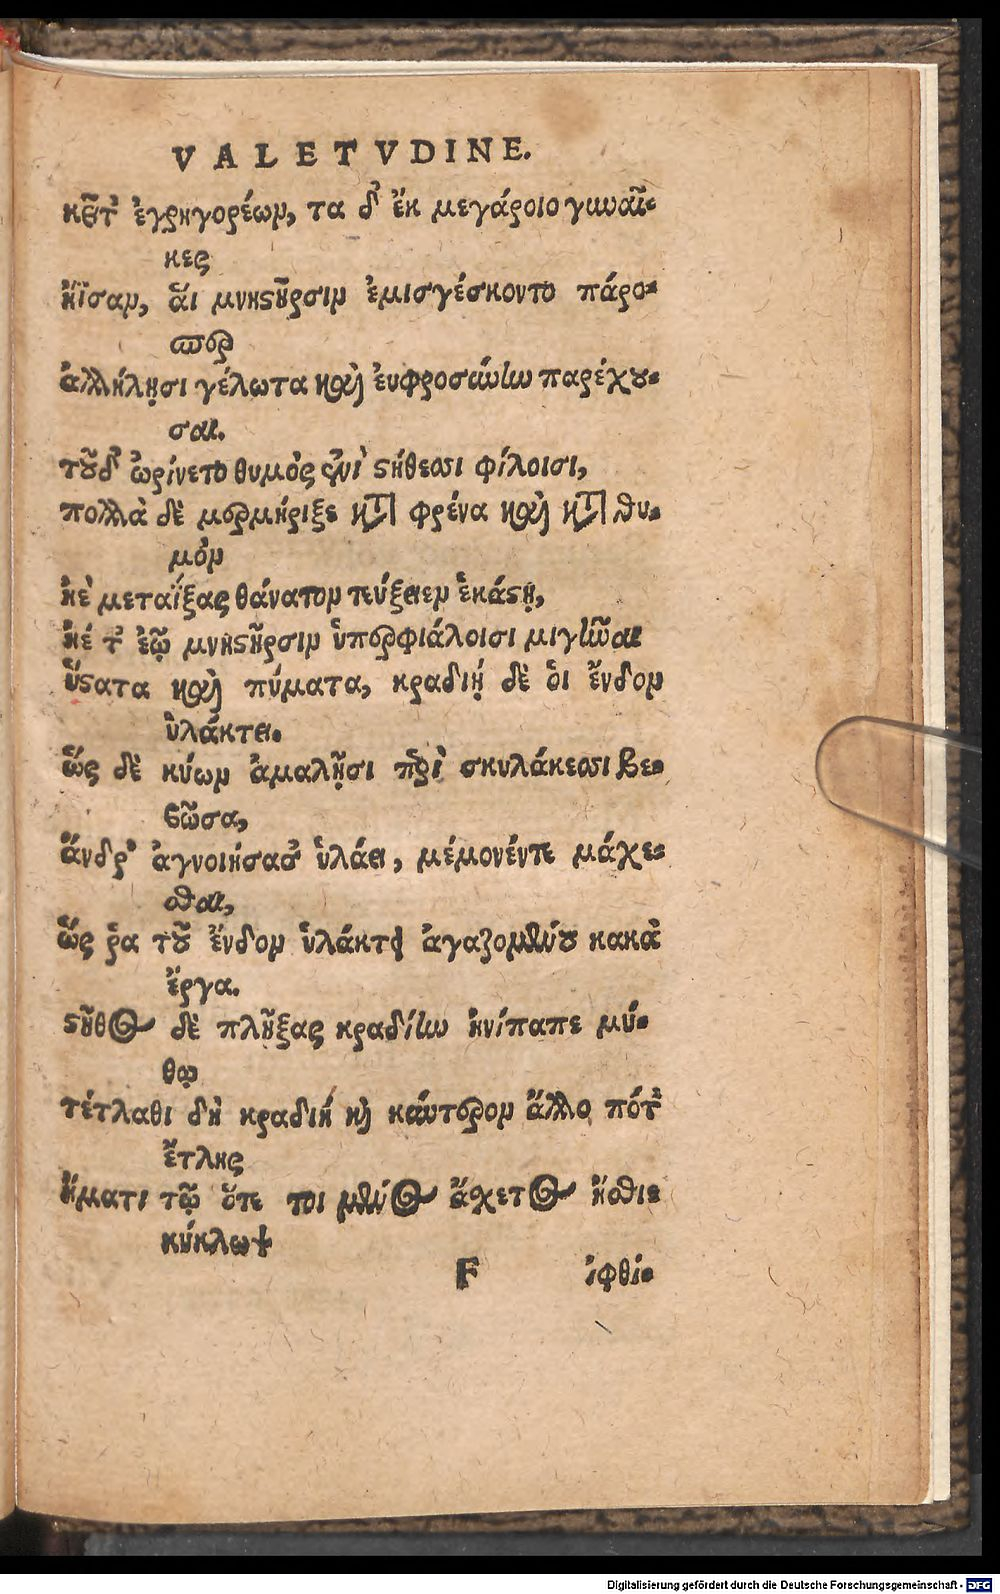 VALETVDINE.
κεῖτ' ἐγρηγορέων, τα δ' ἔκ μεγάροιο γυναῖ-
κες
ἤϊσαν, ἅι μνηστῆρσιν ἐμισγέσκοντο πάρο-
περ
ἀλλήλῃσι γέλωτα καὶ ἐυφροσύνην παρέχου-
σαι.
τοῦ δ' ὠρίνετο θυμὸς ἐνὶ στήθεσσι φίλοισι,
πολλὰ δὲ μερμήριξε κατὰ φρένα καὶ κατὰ θυ-
μὸν
ἠὲ μεταΐξας θάνατον τεύξειεν ἑκάστῃ,
ἠέ τ' ἐῷ μνηστῆρσιν ὑπερφιάλοισι μιγῆναι
ὕστατα καὶ πύματα, κραδίη δὲ ὁι ἔνδον
ὑλάκτει.
ὥς δὲ κύων ἀμαλῇσι περὶ σκυλάκεσσι βε-
βῶσα,
ἄνδρ' ἀγνοιήσασ' ὑλάει, μέμονέν τε μάχε-
σθαι,
ὥς ῥα τοῦ ἔνδον ὑλάκτει ἀγαζομένου κακὰ
ἔργα.
στῆθος δὲ πλῆξας κραδίην ἠνίπαπε μύ-
θῳ
τέτλαθι δὴ κραδίη καὶ κύντερον ἄλλο πότ'
ἔτλης
ἤματι τῷ ὅτε τοι μένος ἄχετος ἤσθιε
κύκλωψ
F ἰφθί-
Digitalisierung gefördert durch die Deutsche Forschungsgemeinschaft - DFG